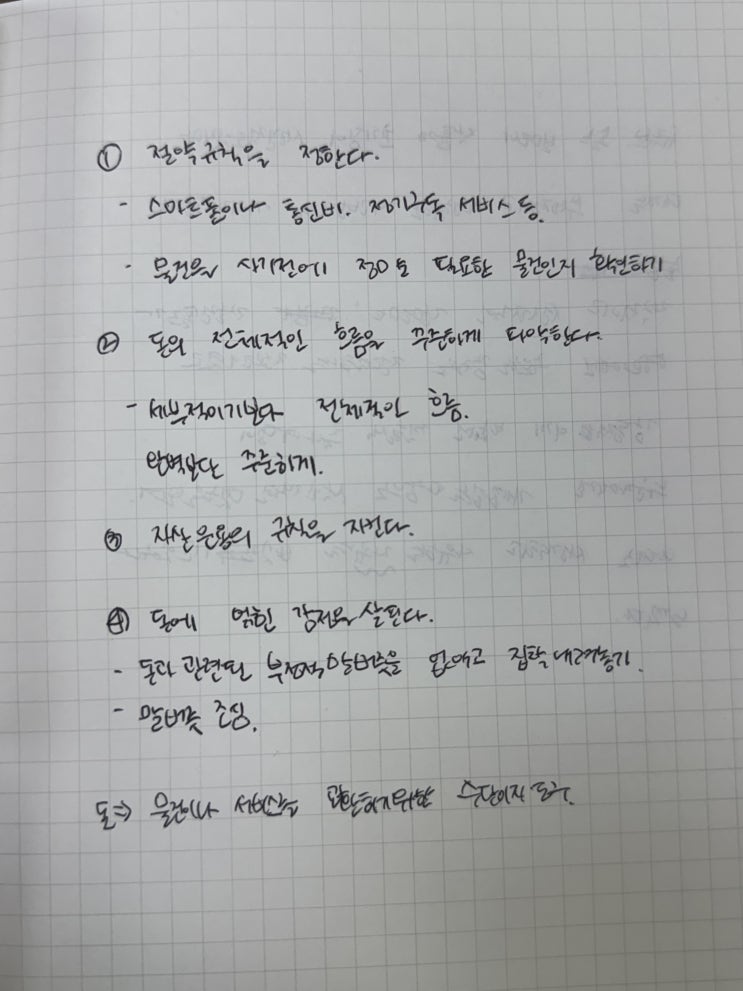 ① 절약규칙을 정한다.
- 스마트폰이나 통신비. 정기구독 서비스 등.
- 물건을 사기전에 정말로 필요한 물건인지 확인하기
② 돈의 전체적인 흐름을 꾸준하게 파악한다.
- 세부적이기보다 전체적인 흐름.
완벽보단 꾸준하게.
③ 자산운용의 규칙을 지킨다.
④ 돈에 얽힌 감정을 살핀다.
- 돈과 관련된 부정적 말버릇을 없애고 집착 내려놓기.
- 말버릇 조심.
돈⇒ 물건이나 서비스를 교환하기위한 수단이자 도구.